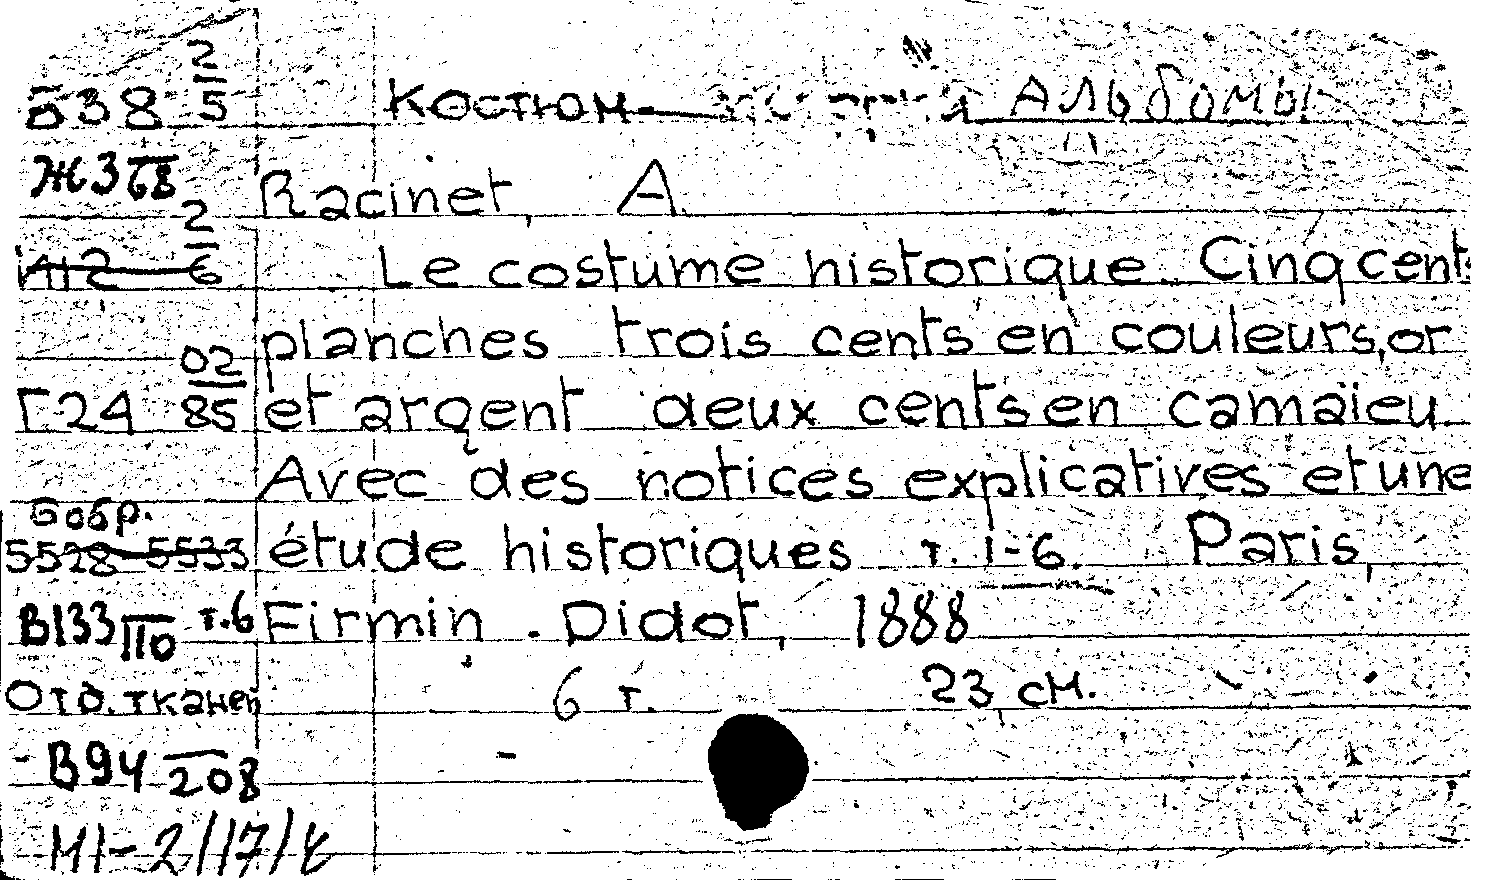 Б38 2/5 Костюм- история Альбомы
Ж3 68 Racinet, A.
И12 2/6 Le costume historique. Cinq cents
planches trois cents en couleurs, or
Г24 02/85 et argent deux cents en camaïeu.
Avec des notices explicatives et une
6 обр.
5528-5533 étude historiques т. 1-6. Paris,
В133 110 т.6 Firmin - Didot, 1888
Отд. тканей 6 т. 23 см.
- В94 208
М1-2/17/